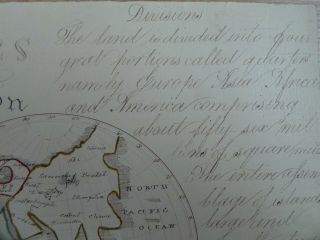 Divisions
The land is divided into four
grat portions called quarters
namely Europe Asia Africa
and America comprising
about fifty six mil
lions of square mil
The entire assem
blage of islands
large and
NORTH
PACIFIC
OCEAN